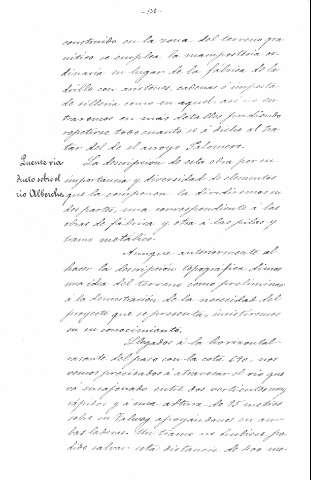 construido en la zona del terreno gra-
nitico se emplea la mampostería or-
dinaria en lugar de la fábrica de la-
drillo con aristones, cadenas e imposta
de sillería como en aquel, así no en-
traremos en más detalles pudiendo
repetirse todo cuanto se á dicho al tra-
tar del de el arroyo Palomero.
Puente via-
ducto sobre el
rio Alberche.
La descripción de esta obra por su
importancia y diversidad de elementos
que la componen la dividiremos en
dos partes, una correspondiente á las
obras de fábrica y otra á las pilas y
tramo metálico.
Aunque anteriormente al
hacer la descripción topográfica dimos
una idea del terreno como preliminar
á la demostración de la necesidad del
proyecto que se presenta, insistiremos
en su conocimiento.
Llegados á la horizontal
rasante del paso con la cota 690. nos
vemos precisados á atravesar el rio que
vá encajonado entre dos vertientes muy
rápidas y á una altura de 95 metros
sobre su Talweg apoyándonos en am-
bas laderas. Un tramo no hubiese po-
dido salvar esta distancia de 400 me-